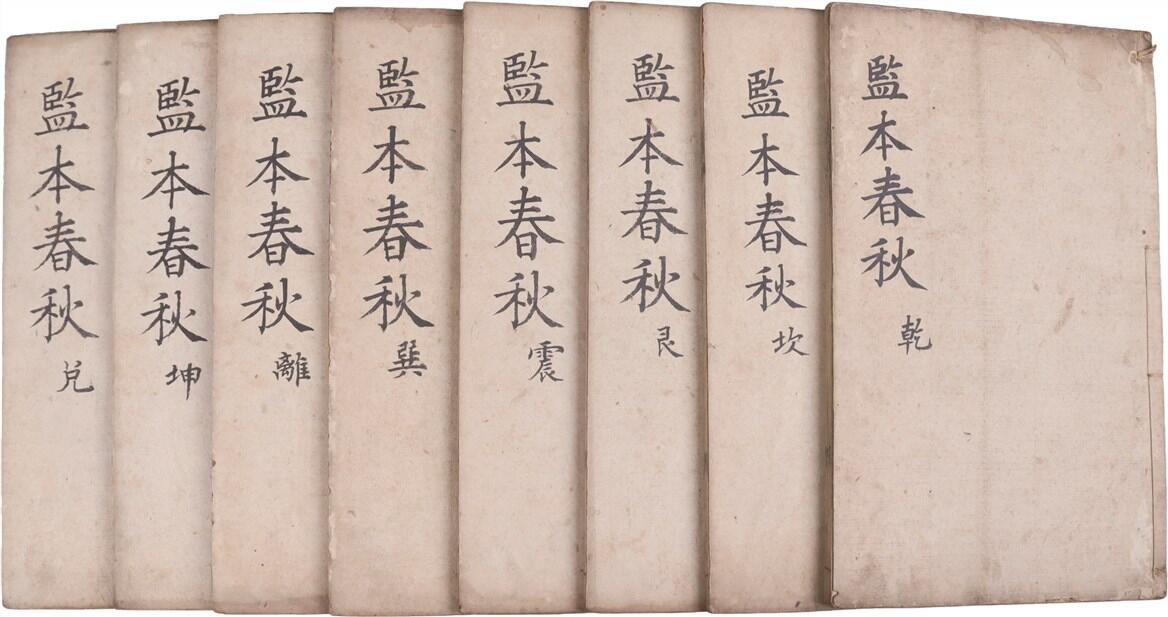 監本春秋 乾
監本春秋 坎
監本春秋 艮
監本春秋 震
監本春秋 巽
監本春秋 離
監本春秋 坤
監本春秋 兑